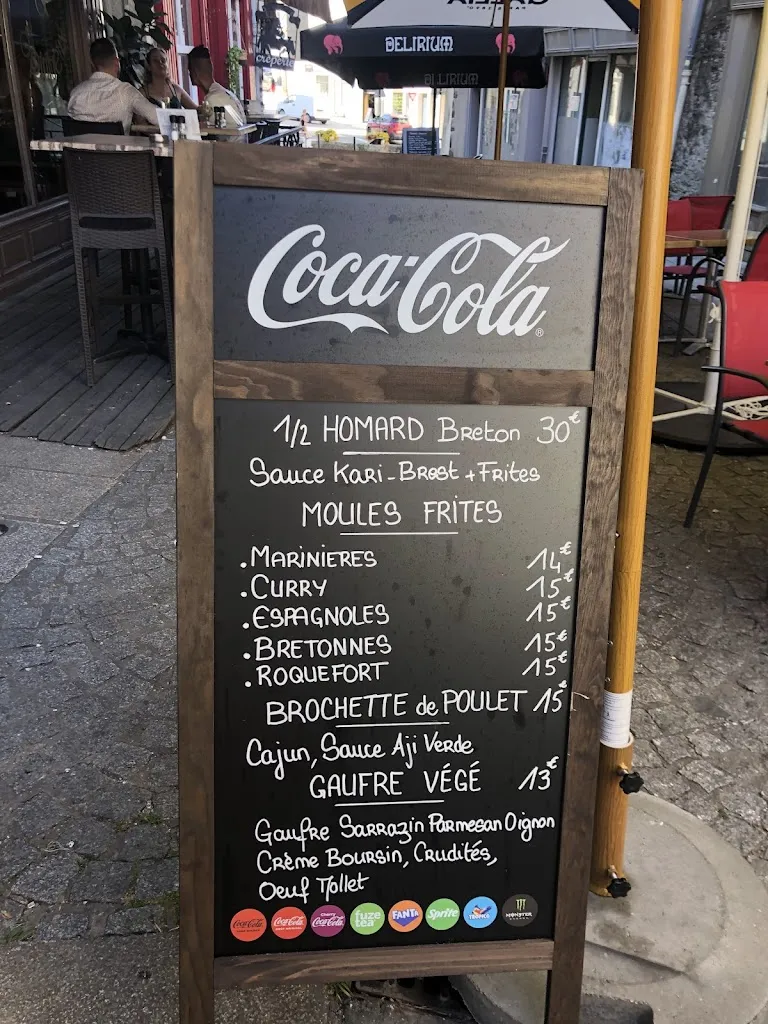 DELIRIUM
DELIRIUM
crêperie
Coca-Cola®
1/2 HOMARD Breton 30€
Sauce Kari-Brest + Frites
MOULES FRITES
. MARINIERES 14€
. CURRY 15€
. ESPAGNOLES 15€
. BRETONNES 15€
. ROQUEFORT 15€
BROCHETTE de POULET 15€
Cajun, Sauce Aji Verde
GAUFRE VÉGÉ 13€
Gaufre Sarrazin Parmesan Oignon
Crème Boursin, Crudités,
Oeuf Mollet
Coca-Cola Coca-Cola Cherry Coca-Cola fuze tea FANTA Sprite TROPICO MONSTER